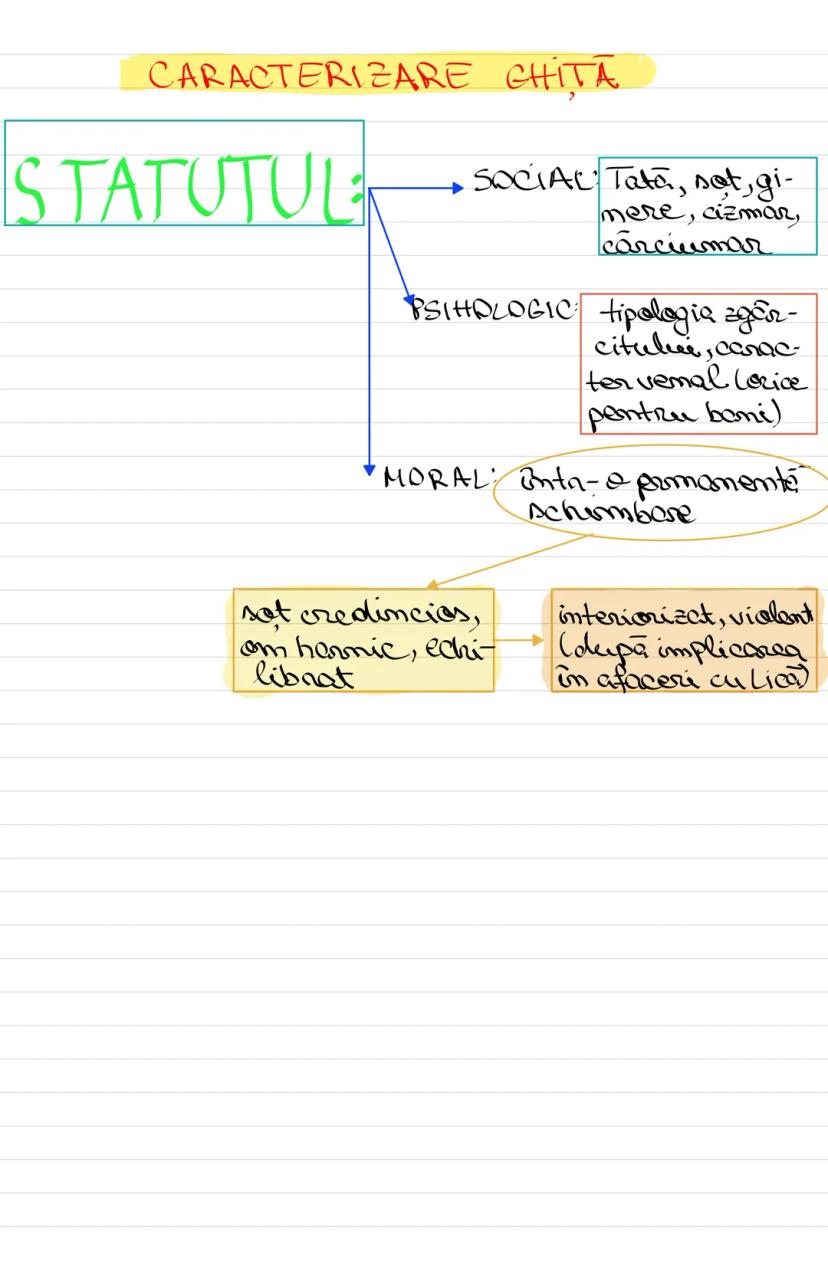 CARACTERIZARE GHIȚĂ
STATUTUL:
SOCIAL: Tată, soț, gi-
nere, cizmar,
cârciumar
PSIHOLOGIC: tipologia zgâr-
citului, carac-
ter venal (orice
pentru bani)
MORAL: într-o permanentă
schimbare
soț credincios,
om harnic, echi-
librat
interiorizat, violent
(după implicarea
în afaceri cu Lică)